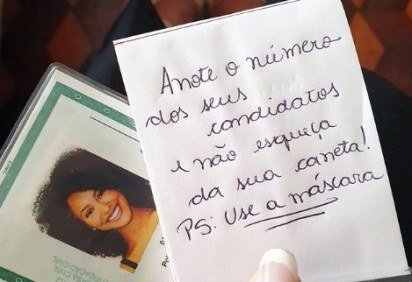 Anote o número
dos seus
candidatos
e não esqueça
da sua caneta!
PS: Use a máscara